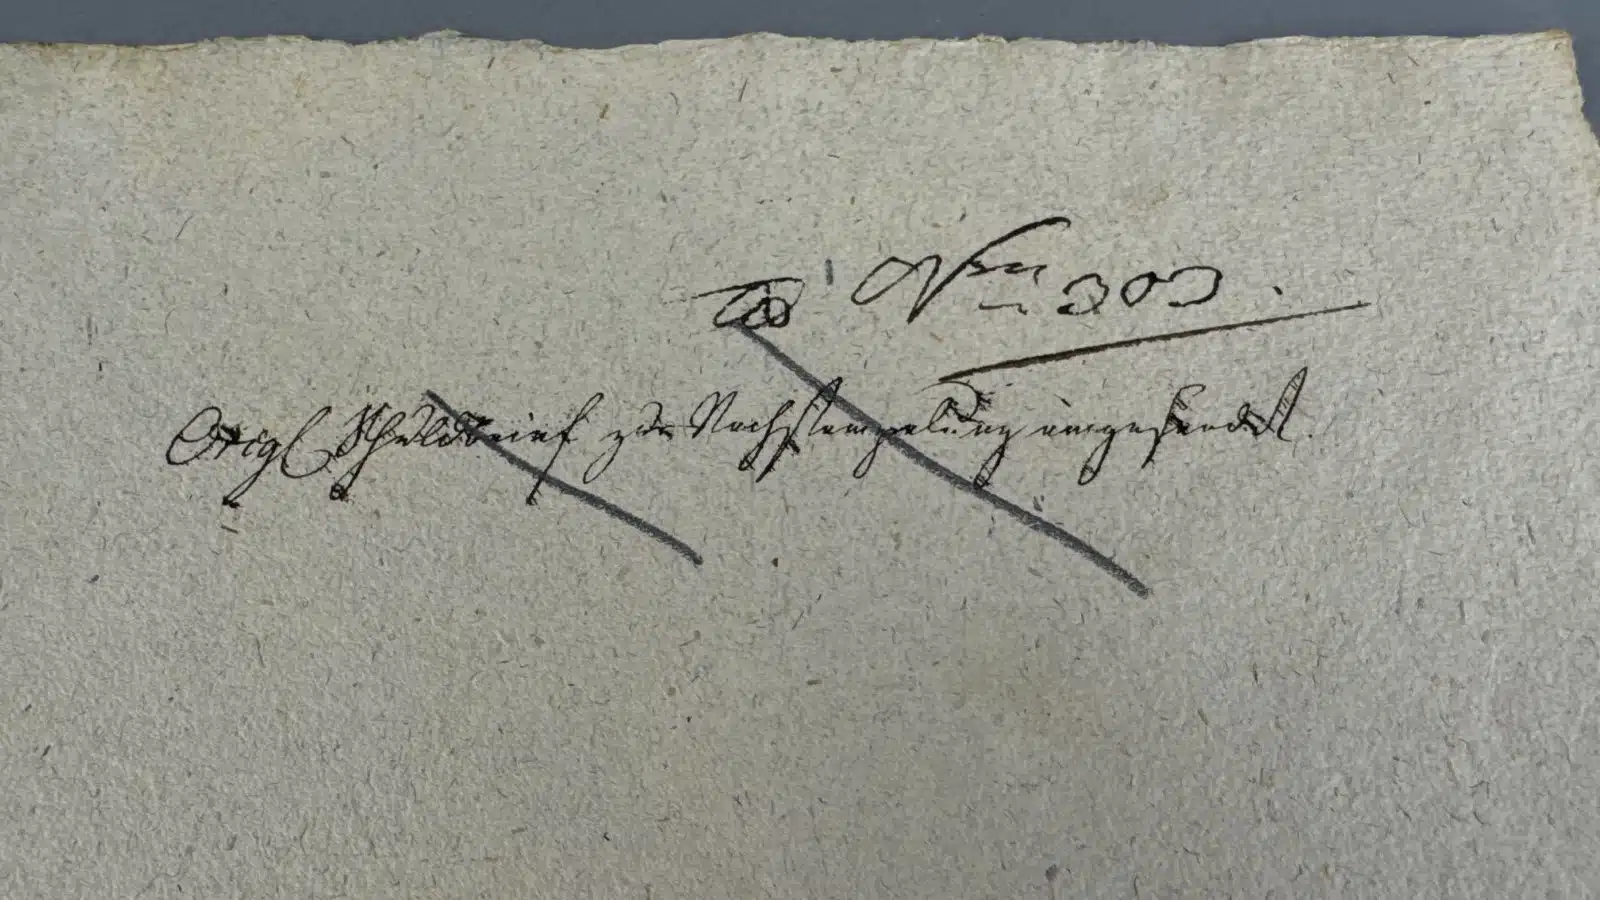 Nro 303.
Origl Schuldbrief zur Nachstempelung eingesendet.